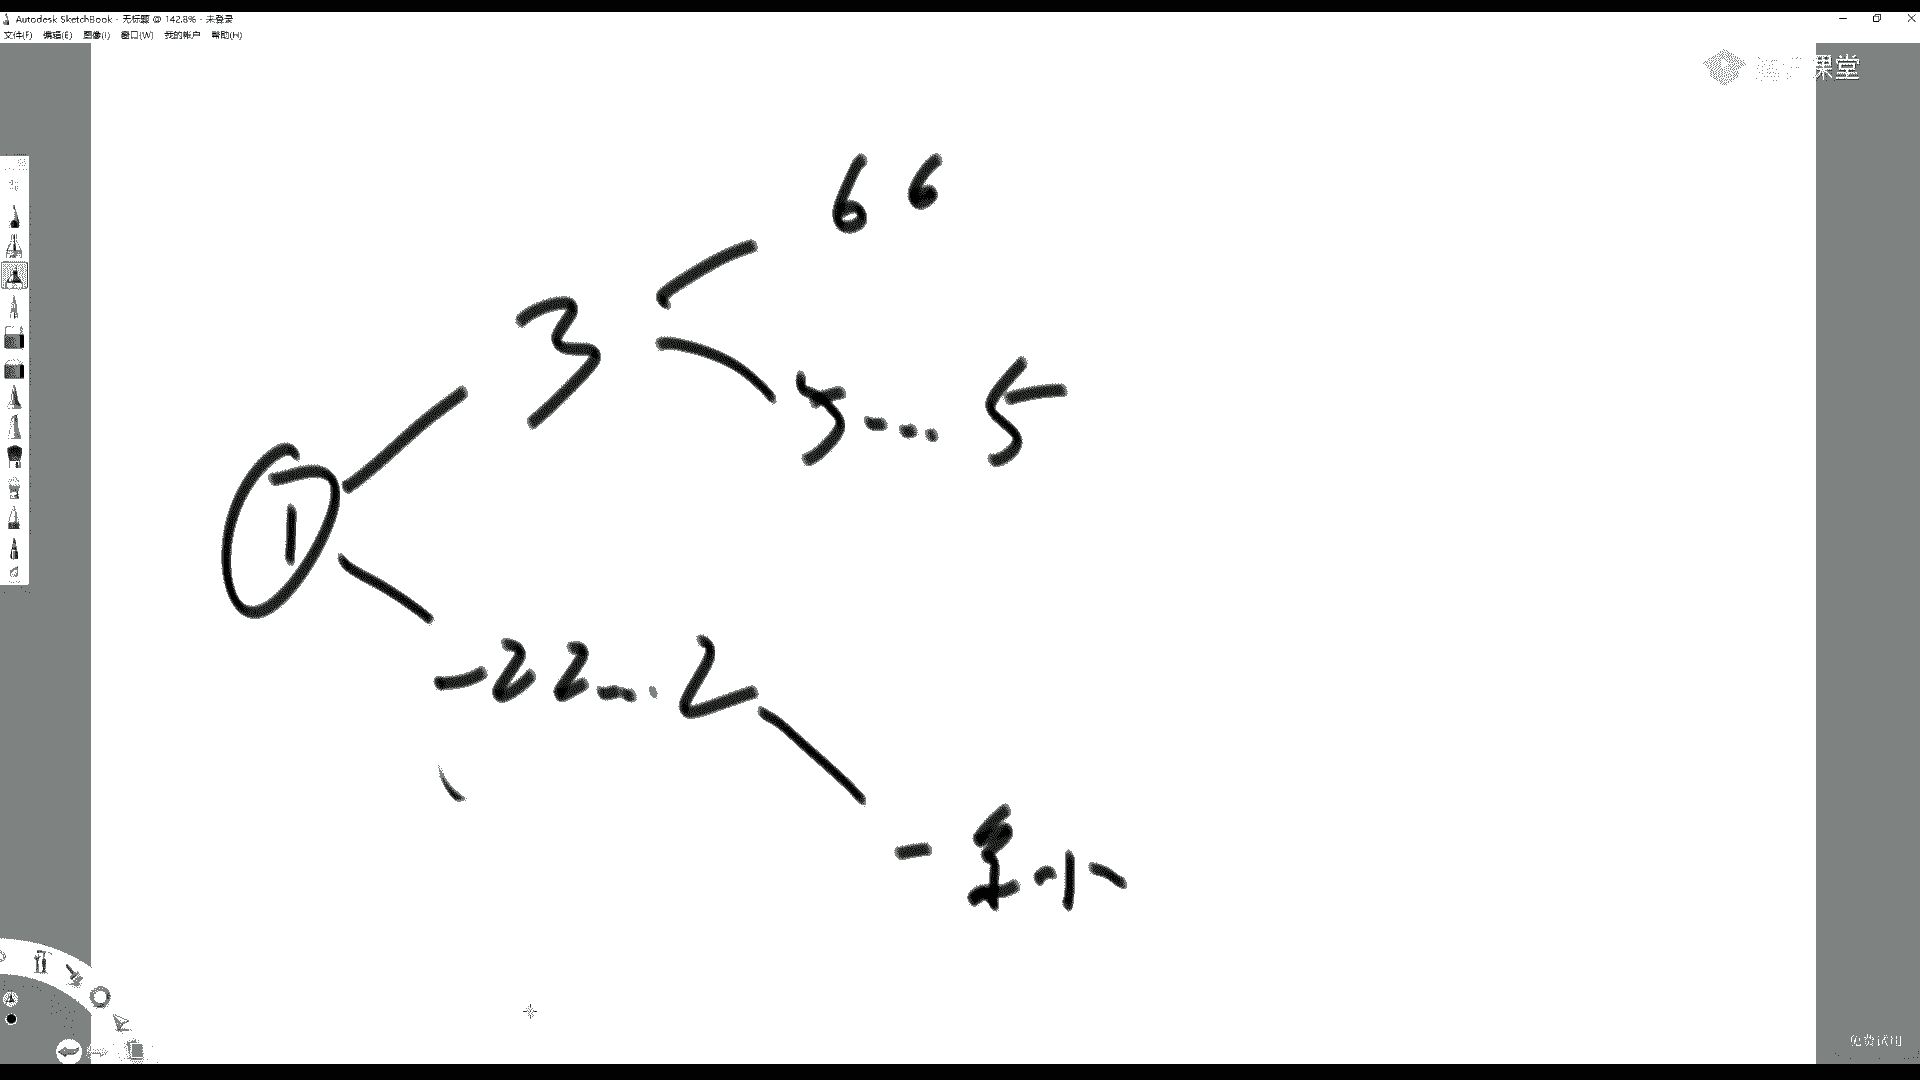 Autodesk SketchBook - 无标题 @ 142.8% - 未登录
文件(F) 编辑(E) 图像(I) 窗口(W) 我的帐户 帮助(H)
课堂
6 6
3
5 ... 5
1
-22...2
小
免费试用